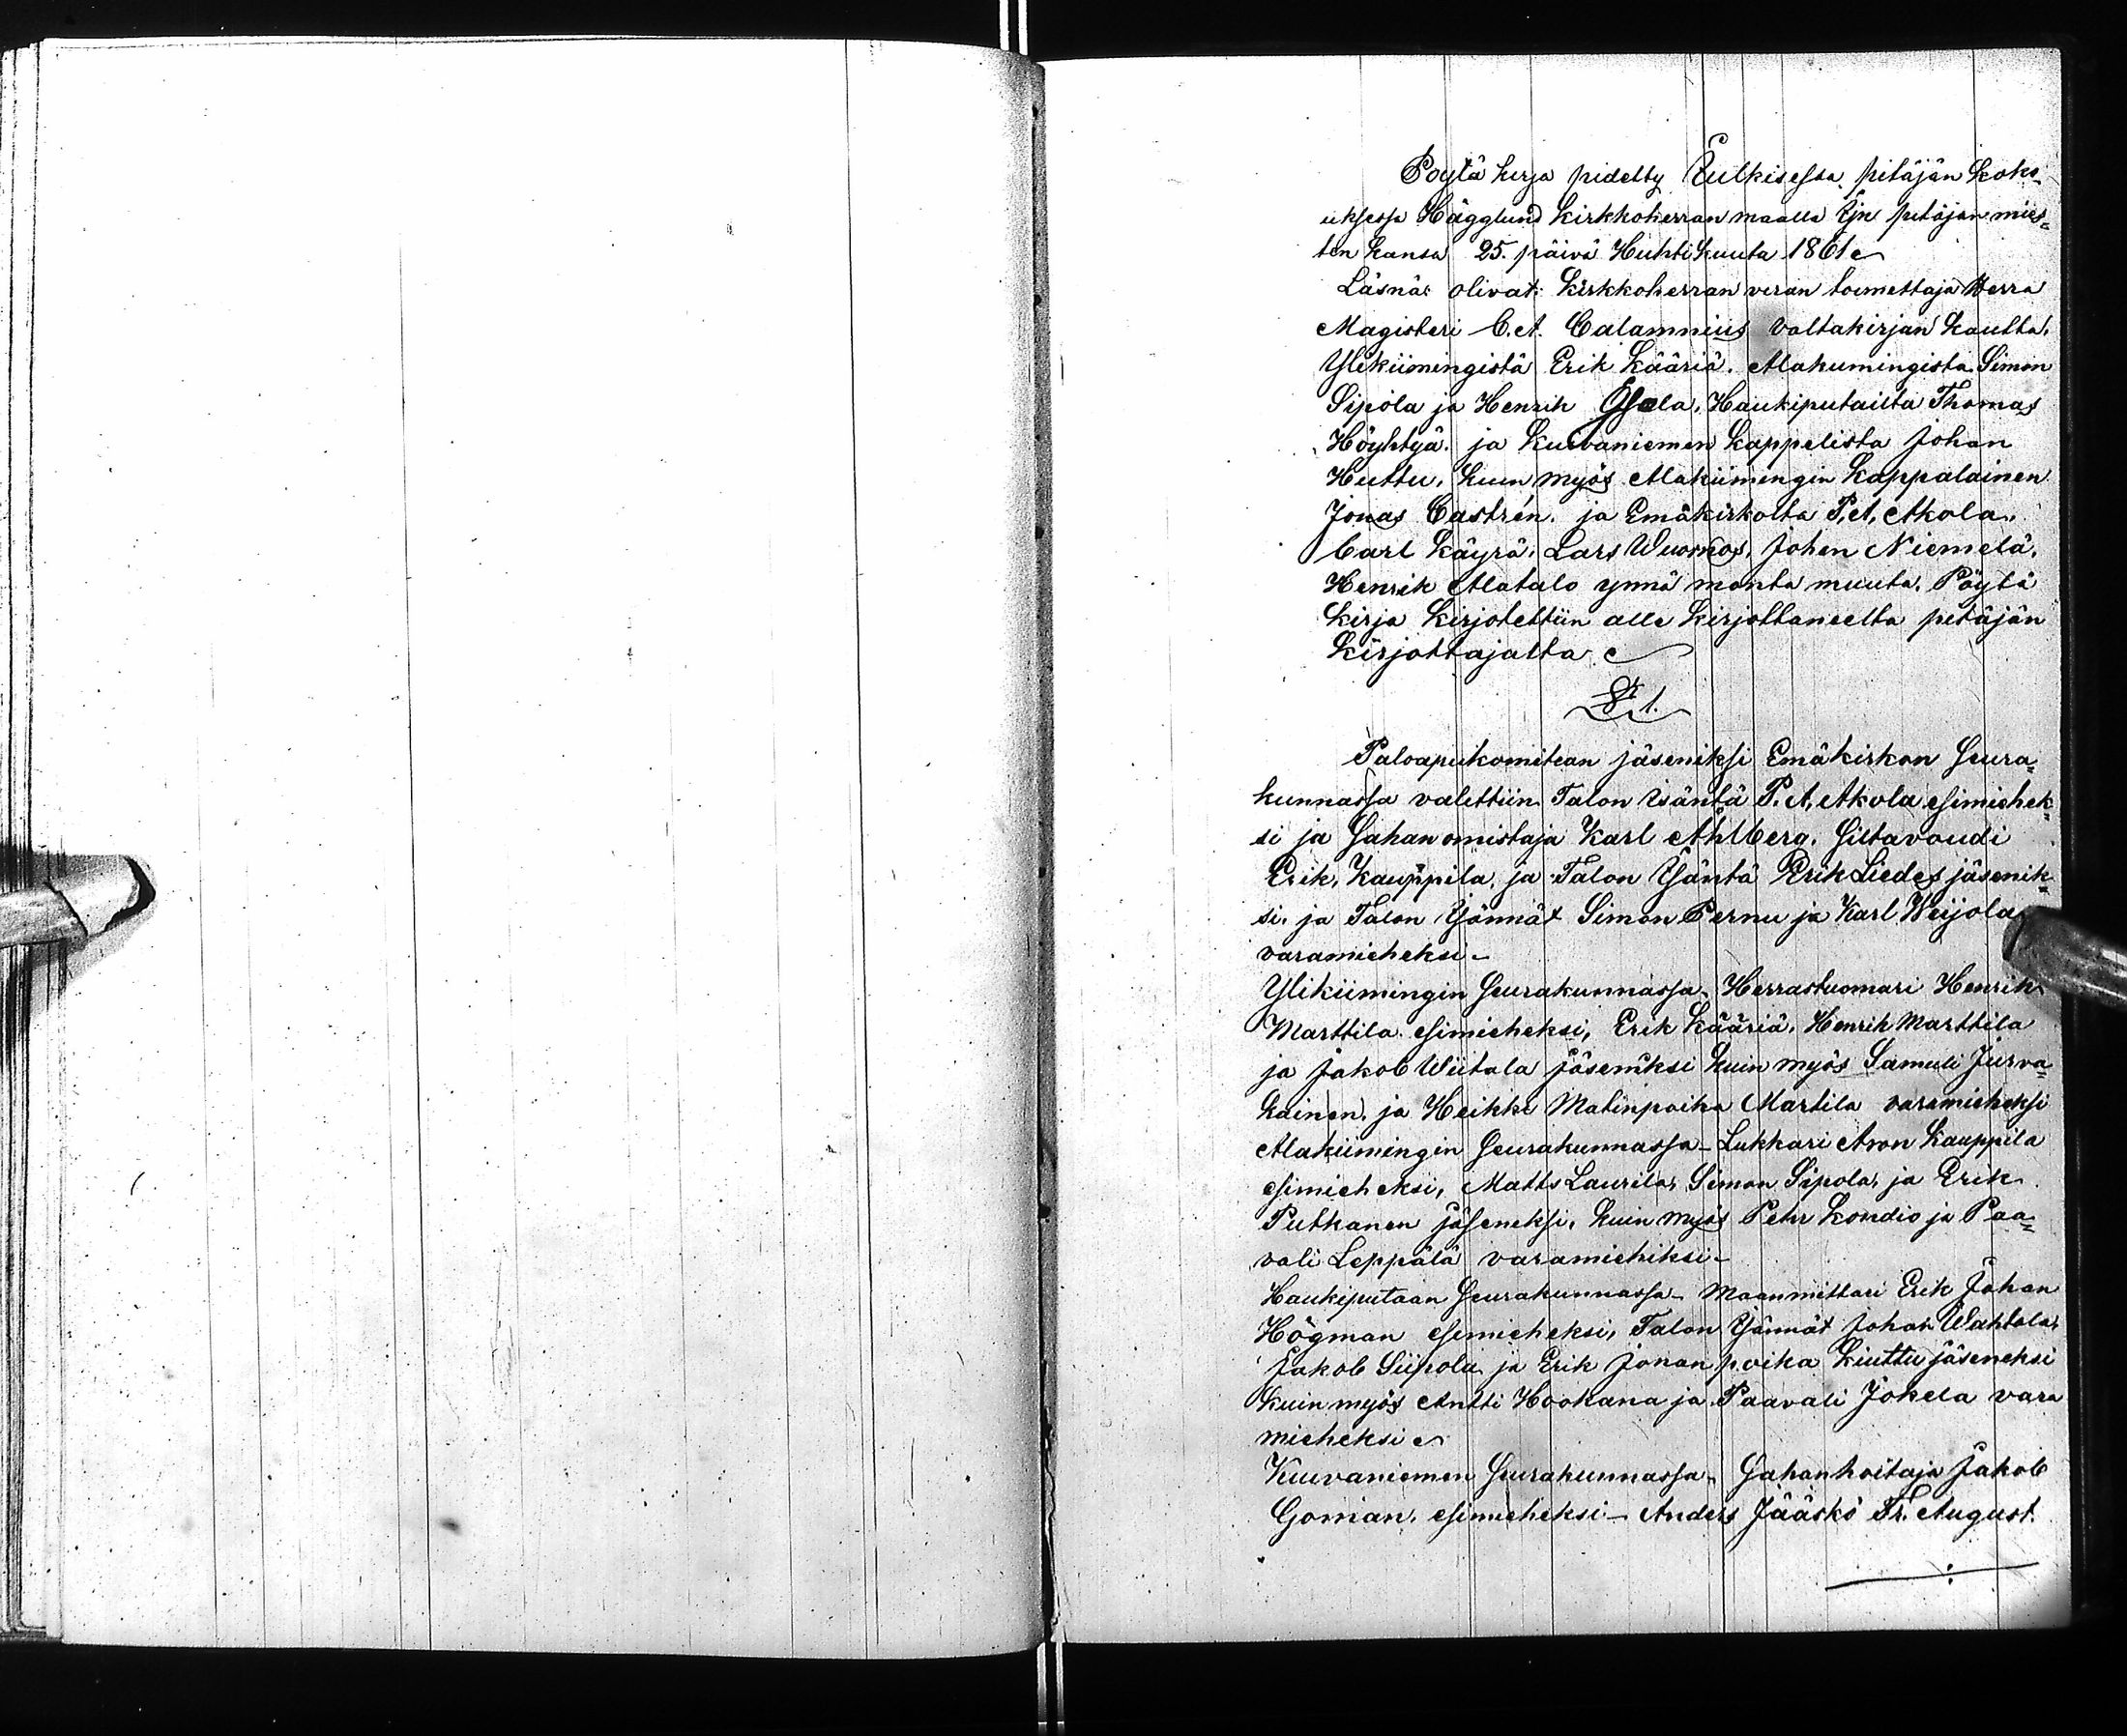 Poytä kirja pidetty Julkisessa pitäjän koko-
uksessa Hägglund kirkkoherran maalla Ijn pitäjän mies=
ten kansa 25. päivä Huhtikuuta 1861
Läsnä olivat: kirkkoherran viran toimettaja Herra
Magisteri C. A. Calamnius valtakirjan kautta.
Ylikiimingistä Erik Kääriä. Alakiimingista Simon
Sipola ja Henrik Haukiputailta Thomas
Höyhtyä. ja Kuivaniemen kappelista Johan
Huttu, kuin myös Alakiimingin kappalainen
Jonas Castrén. ja Emäkirkolta P. A. Akola.
Carl Käyrä. Lars Wuornos, Johan Niemelä.
Henrik Alatalo ynnä monta muuta. Pöytä
kirja kirjotettiin alle kirjottaneelta pitäjän
kirjottajalta
§ 1.
Paloapukomitean jäseniksi Emäkirkon seura=
kunnassa valittiin Talon isäntä P. A. Akola esimiehek=
si ja Sahan omistaja Karl Ahlberg. Siltavoudi
Erik. Kauppila, ja Talon Isäntä Erik Liedes jäsenik=
si. ja Talon Isännät Simon Pernu ja Karl Weijola
varamieheksi -
Ylikiimingin seurakunnassa - Herrastuomari Henrik
Marttila esimieheksi, Erik Kääriä. Henrik Marttila
ja Jakob Wiitala jäseniksi kuin myös Samuli Jurva=
kainen. ja Heikki Matinpoika Martila varamieheksi
Alakiimingin seurakunnassa - Lukkari Aron Kauppila
esimieheksi, Matts Laurila, Simon Sipola, ja Erik
Putkanen jäseneksi. kuin myös Pehr Kondio ja Paa=
vali Leppälä varamiehiksi -
Haukiputaan seurakunnassa - Maanmittari Erik Johan
Högman esimieheksi, Talon Isännät Johan Wahtola,
Jakob Siipola ja Erik Jonan poika Kiuttu jäseneksi
kuin myös Antti Hookana ja Paavali Jokela vara
mieheksi
Kuivaniemen seurakunnassa - Sahanhoitaja Jakob
Goman. esimieheksi - Anders Jääskö Fr. August.